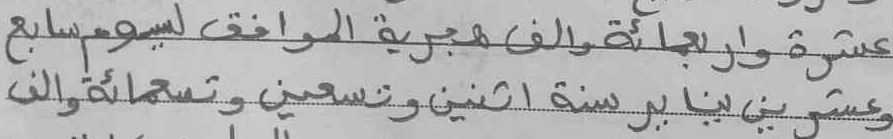 عشرة واربعمائة والف هجرية الموافق ليوم سابع
وعشرين يناير سنة اثنين وتسعين وتسعمائة والف